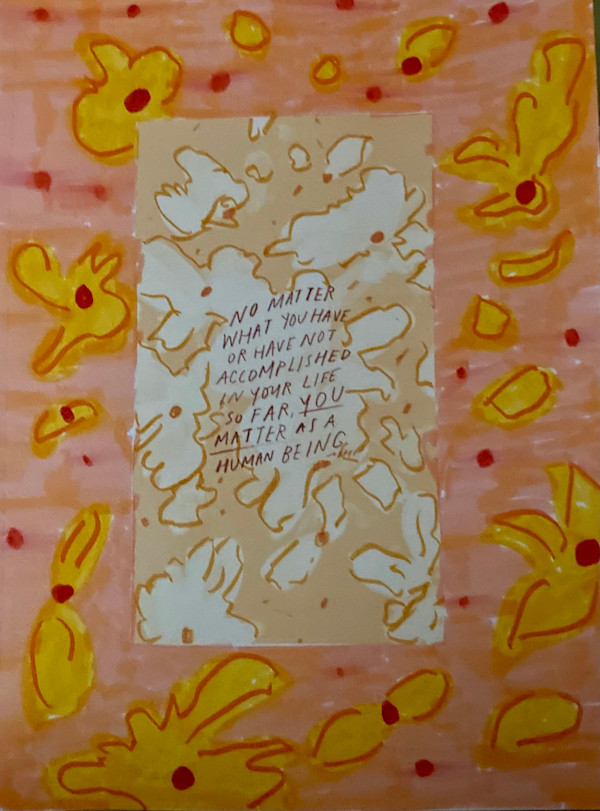 NO MATTER
WHAT YOU HAVE
OR HAVE NOT
ACCOMPLISHED
IN YOUR LIFE
SO FAR, YOU
MATTER AS A
HUMAN BEING.